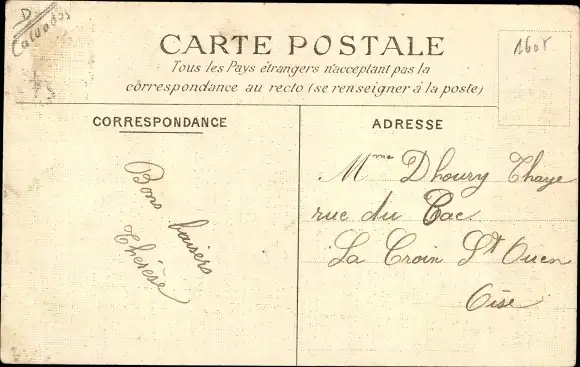 D
Calvados
1608
CARTE POSTALE
Tous les Pays étrangers n'acceptent pas la
correspondance au recto (se renseigner à la poste)
CORRESPONDANCE
Bons baisers
Thérèse
ADRESSE
Mme Dhoury Thaye
rue du Bac
La Croix St Ouen
Oise